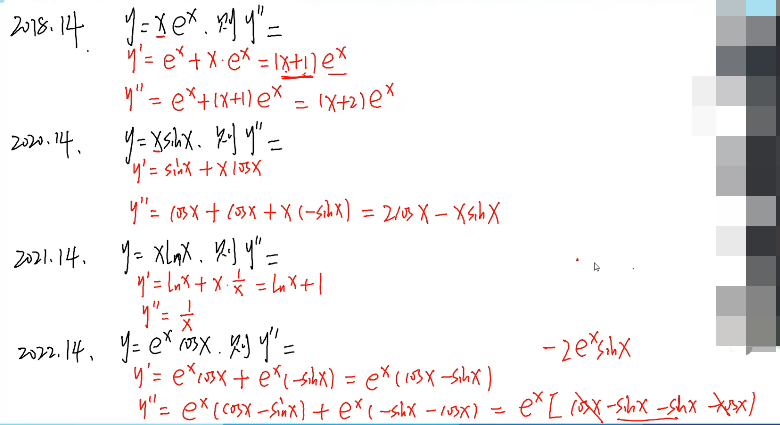 2018.14. y=xeˣ. 则 y''=
y'=eˣ+x·eˣ=(x+1)eˣ
y''=eˣ+(x+1)eˣ=(x+2)eˣ
2020.14. y=xsinx. 则 y''=
y'=sinx+xcosx
y''=cosx+cosx+x(-sinx)=2cosx-xsinx
2021.14. y=xlnx. 则 y''=
y'=lnx+x·1/x=lnx+1
y''=1/x
2022.14. y=eˣcosx. 则 y''=
-2eˣsinx
y'=eˣcosx+eˣ(-sinx)=eˣ(cosx-sinx)
y''=eˣ(cosx-sinx)+eˣ(-sinx-cosx)=eˣ[cosx-sinx-sinx-cosx)